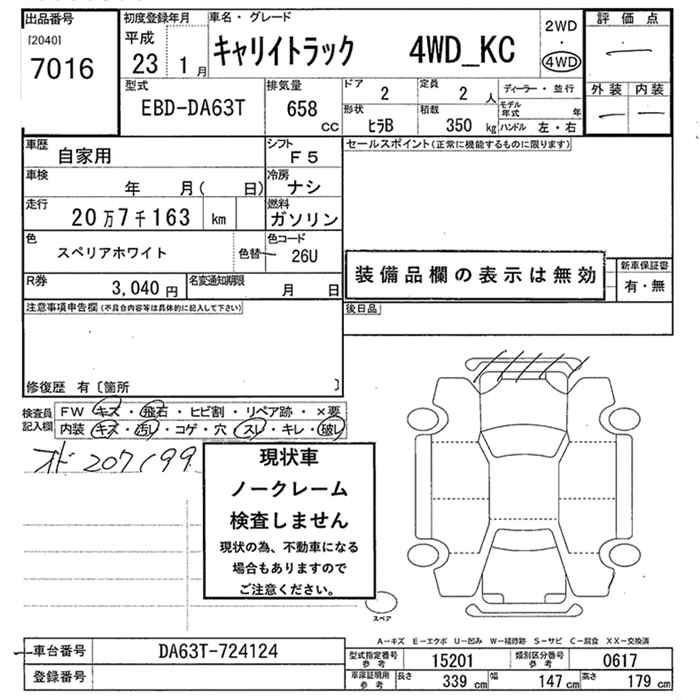 出品番号
[2040]
7016
初度登録年月
平成
23 1月
車名・グレード
キャリイトラック 4WD_KC
2WD
・
4WD
評価点
外装 内装
型式
EBD-DA63T
排気量
658
cc
ドア 2
定員 2 人
ディーラー・並行
形状 ヒラB
積載 350 kg
モデル年式 年
ハンドル 左・右
車歴
自家用
シフト
F5
車検
年 月( 日)
冷房
ナシ
走行
20万7千163 km
燃料
ガソリン
色
スペリアホワイト
色替
色コード
26U
R券
3,040円
名変通知期限
月 日
セールスポイント(正常に機能するものに限ります)
装備品欄の表示は無効
新車保証書
有・無
注意事項申告欄(不具合内容等は具体的に記入して下さい)
後日品
修復歴 有〔箇所 〕
検査員記入欄
FW キズ・飛石・ヒビ割・リペア跡・×要
内装 キズ・汚レ・コゲ・穴・スレ・キレ・破レ
オド 207199
現状車
ノークレーム
検査しません
現状の為、不動車になる
場合もありますので
ご注意ください。
スペア
A-キズ E-エクボ U-凹み W-補修跡 S-サビ C-腐食 XX-交換済
車台番号
DA63T-724124
型式指定番号 参考
15201
類別区分番号 参考
0617
登録番号
車庫証明用 参考
長さ 339 cm
幅 147 cm
高さ 179 cm